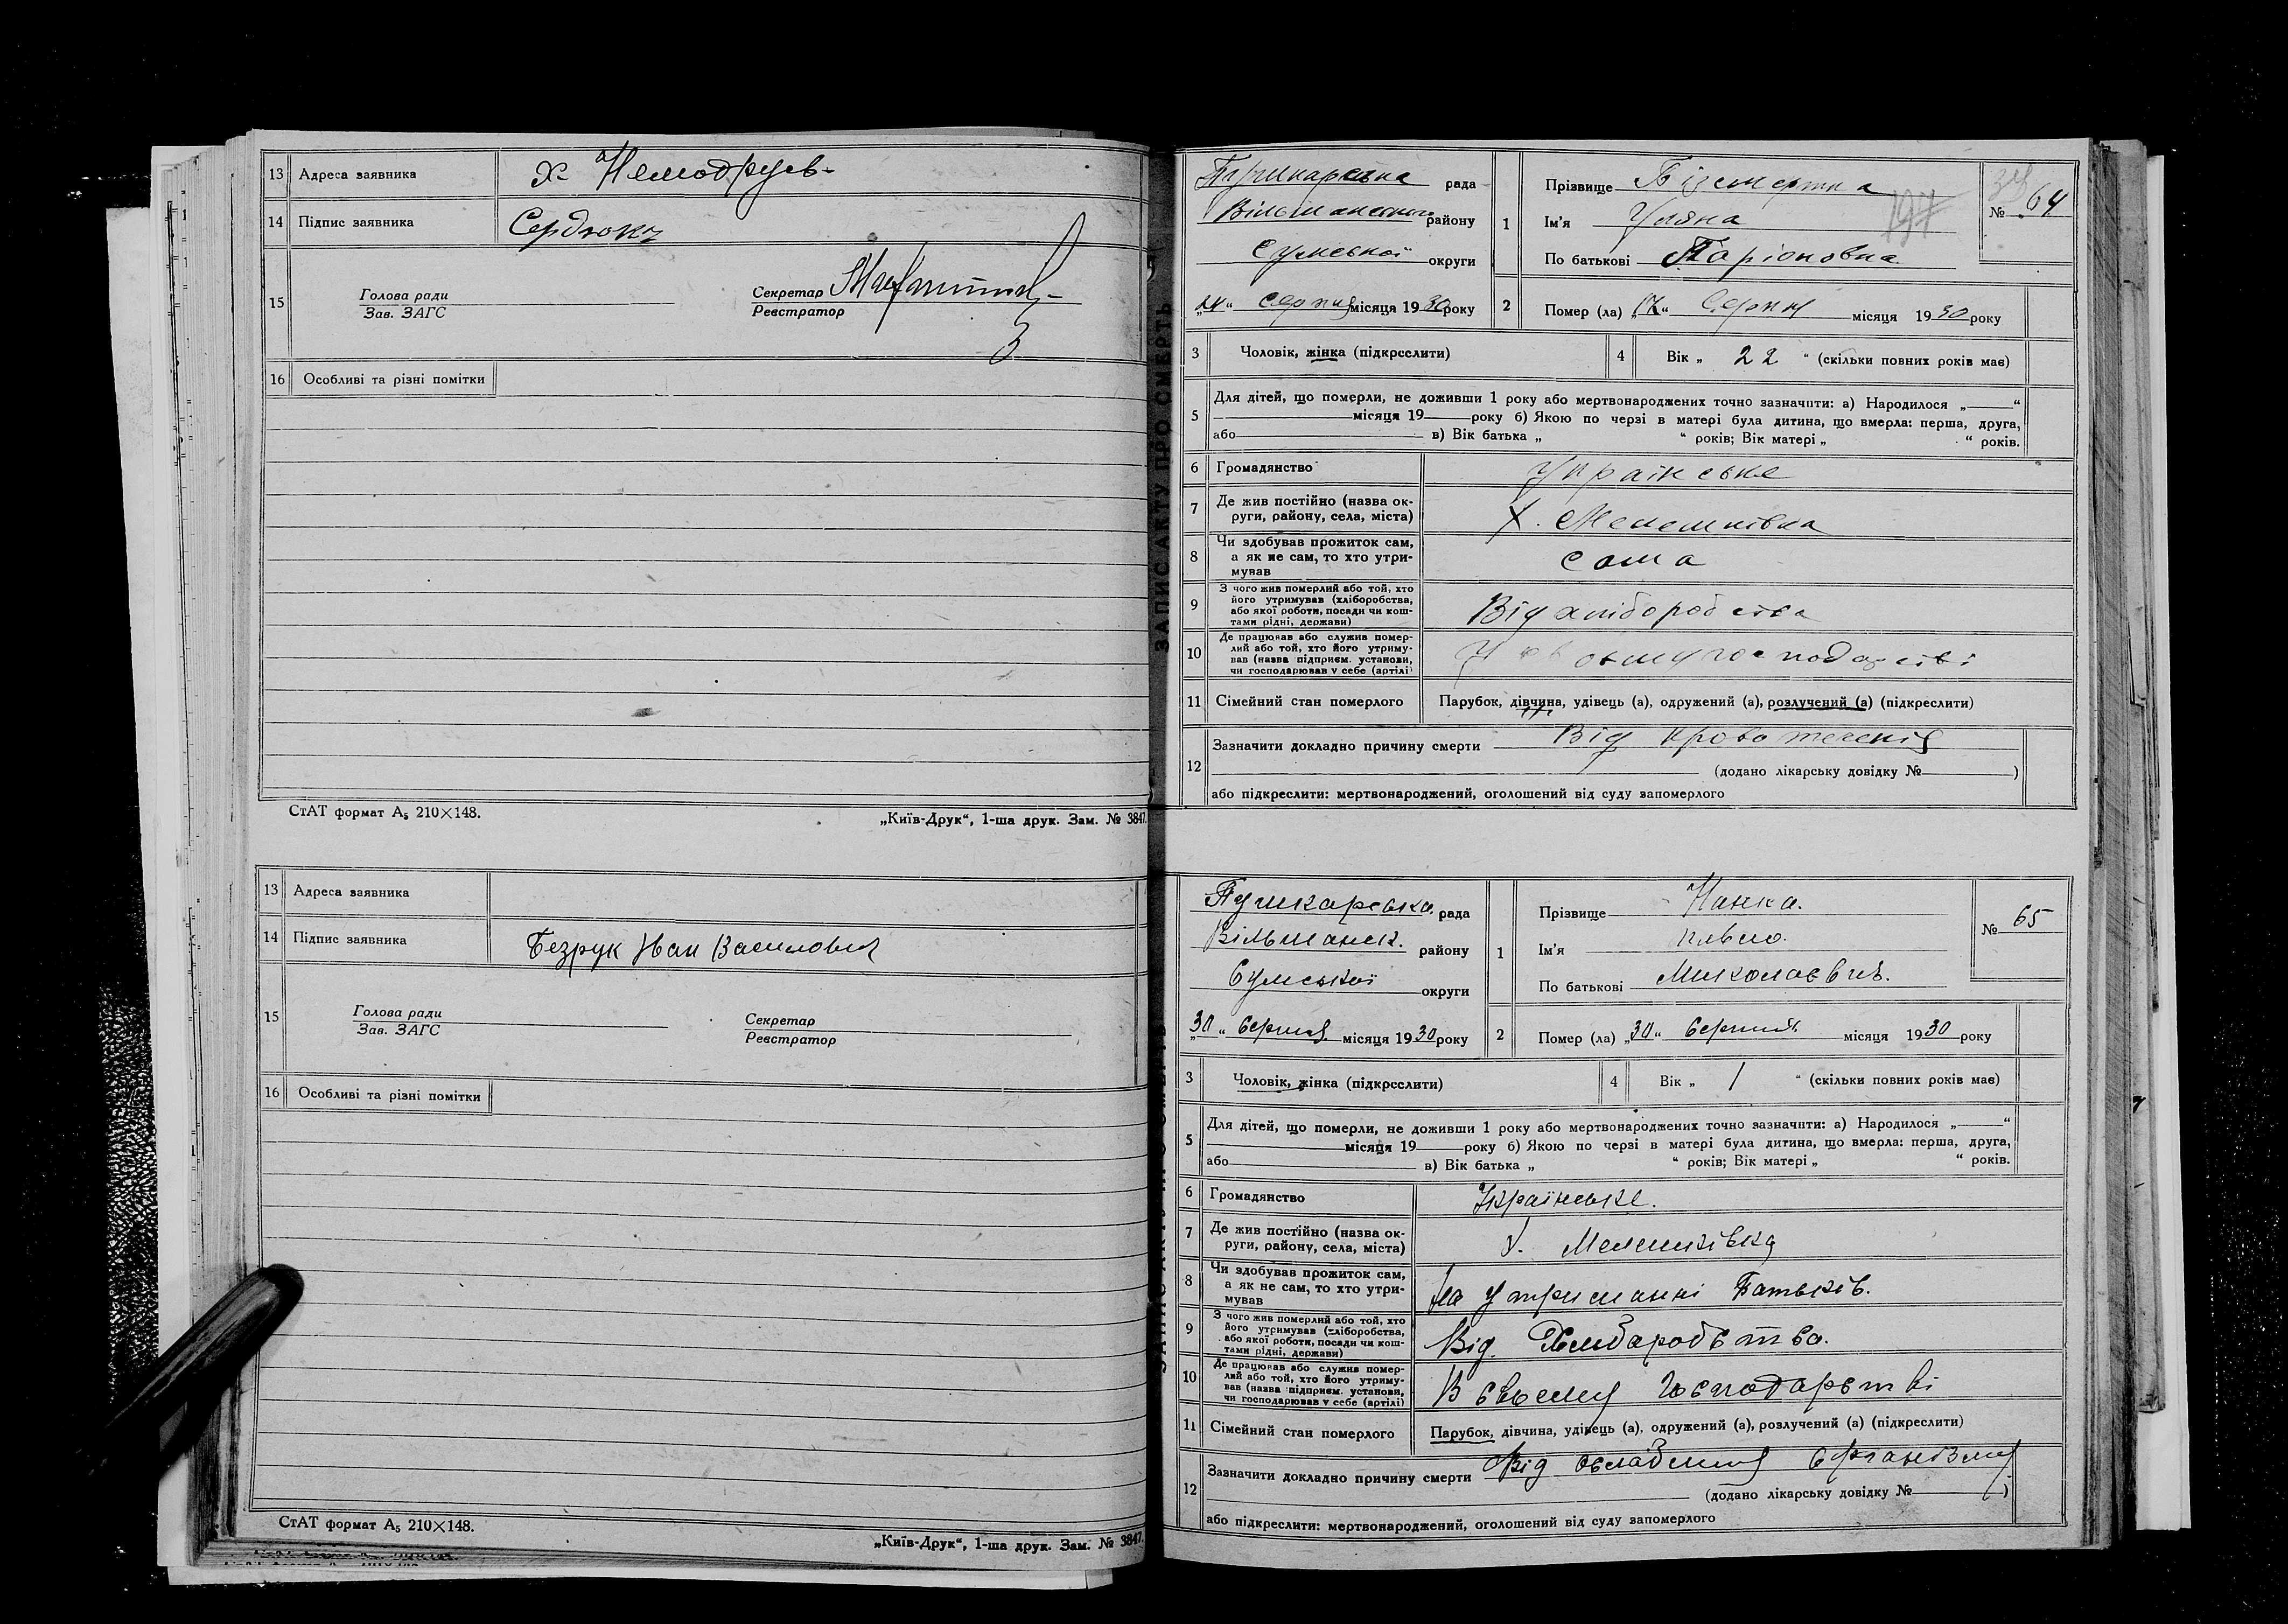 13 Адреса заявника х Немодрувь-
14 Підпис заявника Сердюкъ
15 Голова ради
Зав. ЗАГС
Секретар
Реєстратор
16 Особливі та різні помітки
СтАТ формат А₅ 210×148.
„Київ-Друк“, 1-ша друк. Зам. № 3847.
13 Адреса заявника
14 Підпис заявника Безрук Иван Василович
15 Голова ради
Зав. ЗАГС
Секретар
Реєстратор
16 Особливі та різні помітки
СтАТ формат А₅ 210×148.
„Київ-Друк“, 1-ша друк. Зам. № 3847.
ЗАПИС АКТУ ПРО СМЕРТЬ
Пушкарська рада
Вільшанського району
Сумської округи
„24“ Серпня місяця 1930 року
1 Прізвище Бізсмертна
Ім'я Уляна
По батькові Ларіоновна
197
№ 64
2 Помер (ла) Серпня місяця 1930 року
3 Чоловік, жінка (підкреслити)
4 Вік „ 22 “ (скільки повних років має)
5 Для дітей, що померли, не доживши 1 року або мертвонароджених точно зазначити: а) Народилося „ “
місяця 19 року б) Якою по черзі в матері була дитина, що вмерла: перша, друга,
або в) Вік батька „ “ років; Вік матері „ “ років.
6 Громадянство Українське
7 Де жив постійно (назва ок-
руги, району, села, міста) Х. Мелешківка
8 Чи здобував прожиток сам,
а як не сам, то хто утри-
мував сама
9 З чого жив померлий або той, хто
його утримував (хліборобства,
або якої роботи, посади чи кош-
тами рідні, держави) Від хліборобства
10 Де працював або служив помер-
лий або той, хто його утриму-
вав (назва підприєм. установи,
чи господарював у себе (артілі) У своєму господарстві
11 Сімейний стан померлого Парубок, дівчина, удівець (а), одружений (а), розлучений (а) (підкреслити)
12 Зазначити докладно причину смерти Від кровотеченія
(додано лікарську довідку № )
або підкреслити: мертвонароджений, оголошений від суду запомерлого
Пушкарська рада
Вільшанськ. району
Сумської округи
„30“ Серпня місяця 1930 року
1 Прізвище
Ім'я
По батькові Миколаєвич.
№ 65
2 Помер (ла) „30“ Серпня місяця 1930 року
3 Чоловік, жінка (підкреслити)
4 Вік „ 1 “ (скільки повних років має)
5 Для дітей, що померли, не доживши 1 року або мертвонароджених точно зазначити: а) Народилося „ “
місяця 19 року б) Якою по черзі в матері була дитина, що вмерла: перша, друга,
або в) Вік батька „ “ років; Вік матері „ “ років.
6 Громадянство Українське.
7 Де жив постійно (назва ок-
руги, району, села, міста) Х. Мелешківка
8 Чи здобував прожиток сам,
а як не сам, то хто утри-
мував На утриманні Батьків.
9 З чого жив померлий або той, хто
його утримував (хліборобства,
або якої роботи, посади чи кош-
тами рідні, держави) Від Хлібаробства.
10 Де працював або служив помер-
лий або той, хто його утриму-
вав (назва підприєм. установи,
чи господарював у себе (артілі) В своєму господарстві
11 Сімейний стан померлого Парубок, дівчина, удівець (а), одружений (а), розлучений (а) (підкреслити)
12 Зазначити докладно причину смерти Від ослаблення організму
(додано лікарську довідку № )
або підкреслити: мертвонароджений, оголошений від суду запомерлого